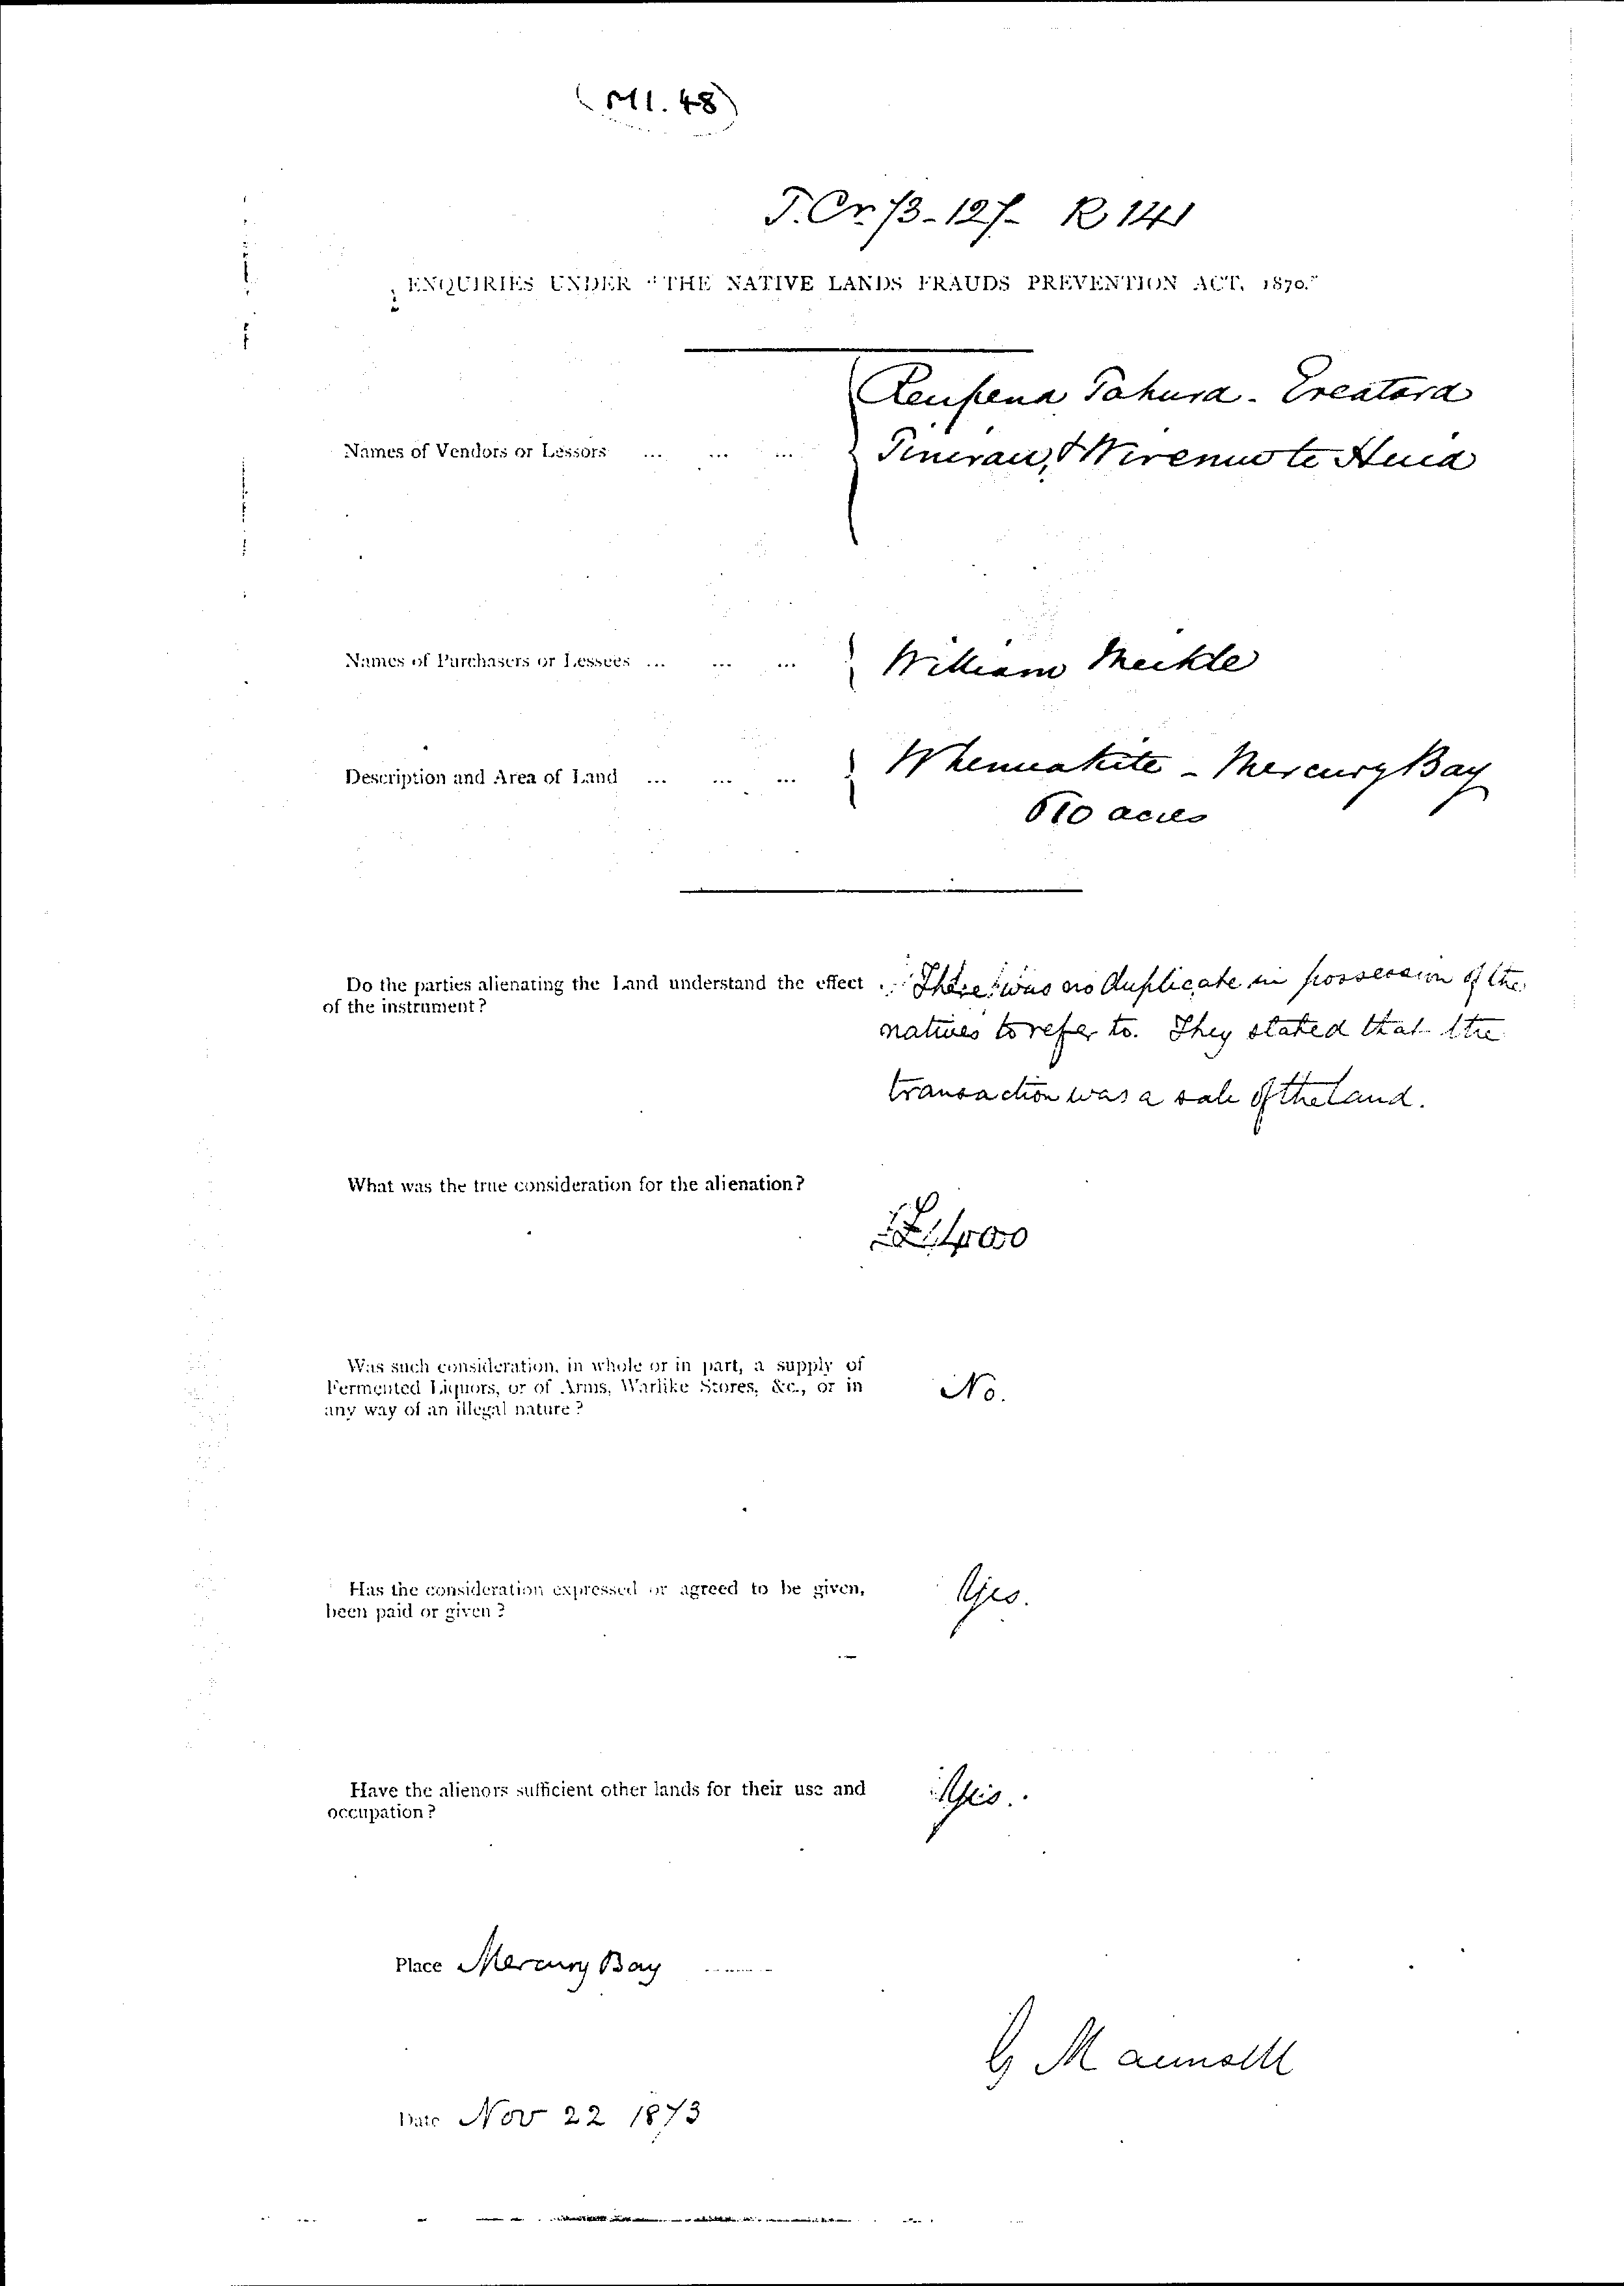 (M1.48)
T. Cr. 73-127- R 141
ENQUIRIES UNDER "THE NATIVE LANDS FRAUDS PREVENTION ACT, 1870."
Reupena Tahura - Ereatara
Names of Vendors or Lessors ... ... ...
Tinirau, & Wiremu te Huia
Names of Purchasers or Lessees ... ... ... William Meikle
Description and Area of Land ... ... ... Whenuakite - Mercury Bay
610 acres
Do the parties alienating the Land understand the effect
of the instrument?
There was no duplicate in possession of the
natives to refer to. They stated that the
transaction was a sale of the Land.
What was the true consideration for the alienation?
Was such consideration, in whole or in part, a supply of
Fermented Liquors, or of Arms, Warlike Stores, &c., or in
any way of an illegal nature?
No.
Has the consideration expressed or agreed to be given,
been paid or given?
Yes.
Have the alienors sufficient other lands for their use and
occupation?
Yes.
Place Mercury Bay
G Maunsell
Date Nov 22 1873